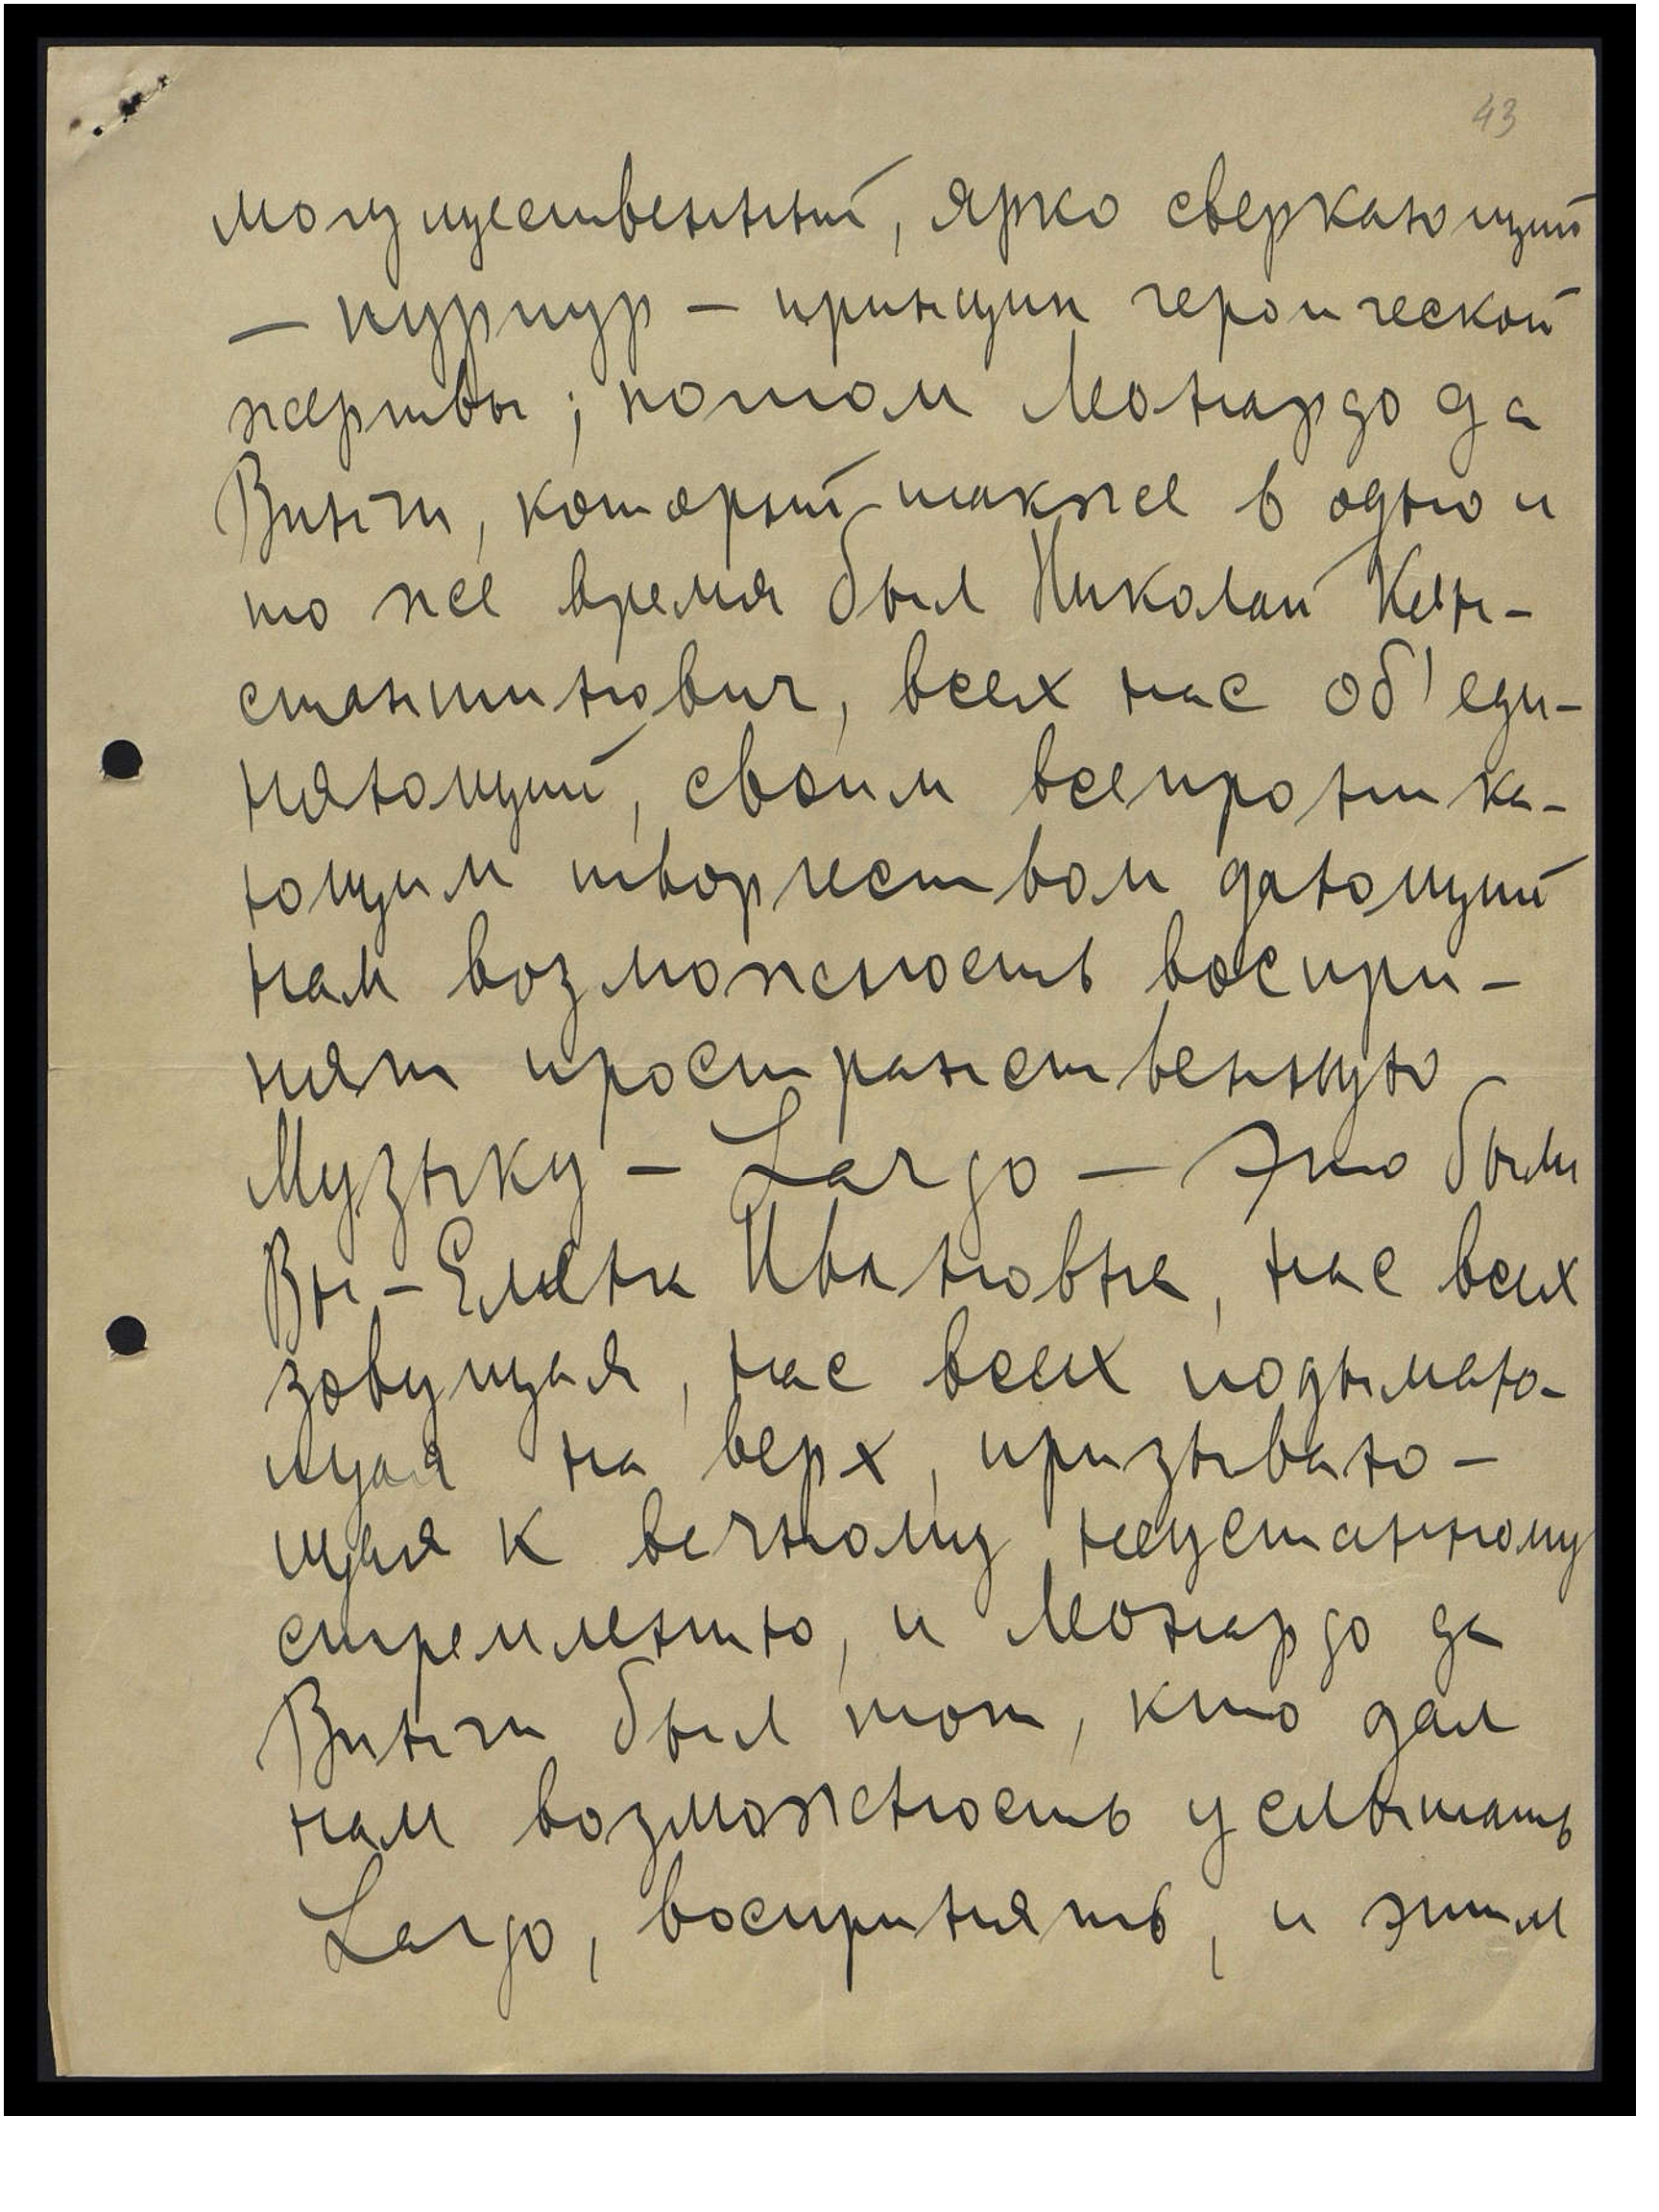 43
могущественный, ярко сверкающий
— пурпур — принцип героической
жертвы; потом Леонардо да
Винчи, который также в одно и
то же время был Николай Кон-
стантинович, всех нас об'еди-
няющий, своим всепроника-
ющим творчеством дающий
нам возможность воспри-
нять пространственную
Музыку — Largo — Это были
Вы — Елена Ивановна, нас всех
зовущая, нас всех подымаю-
щая на верх, призываю-
щая к вечному неустанному
стремлению, и Леонардо да
Винчи был тот, кто дал
нам возможность услышать
Largo, воспринять, и этим